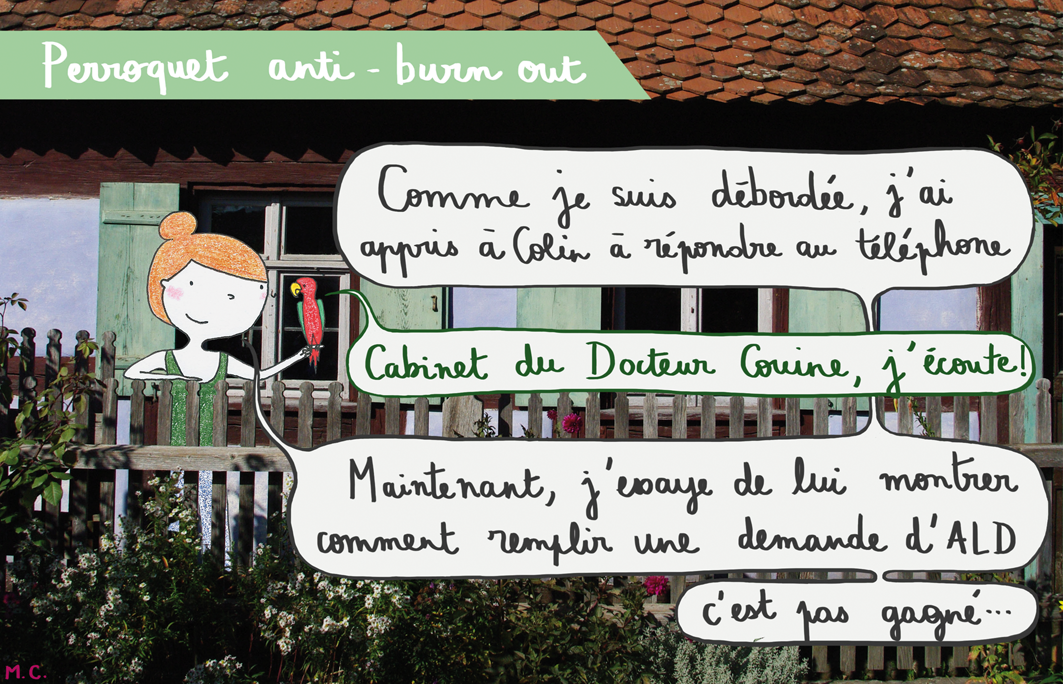 Perroquet anti-burn out
Comme je suis débordée, j'ai
appris à Colin à répondre au téléphone
Cabinet du Docteur Couine, j'écoute!
Maintenant, j'essaye de lui montrer
comment remplir une demande d'ALD
c'est pas gagné...
M.C.